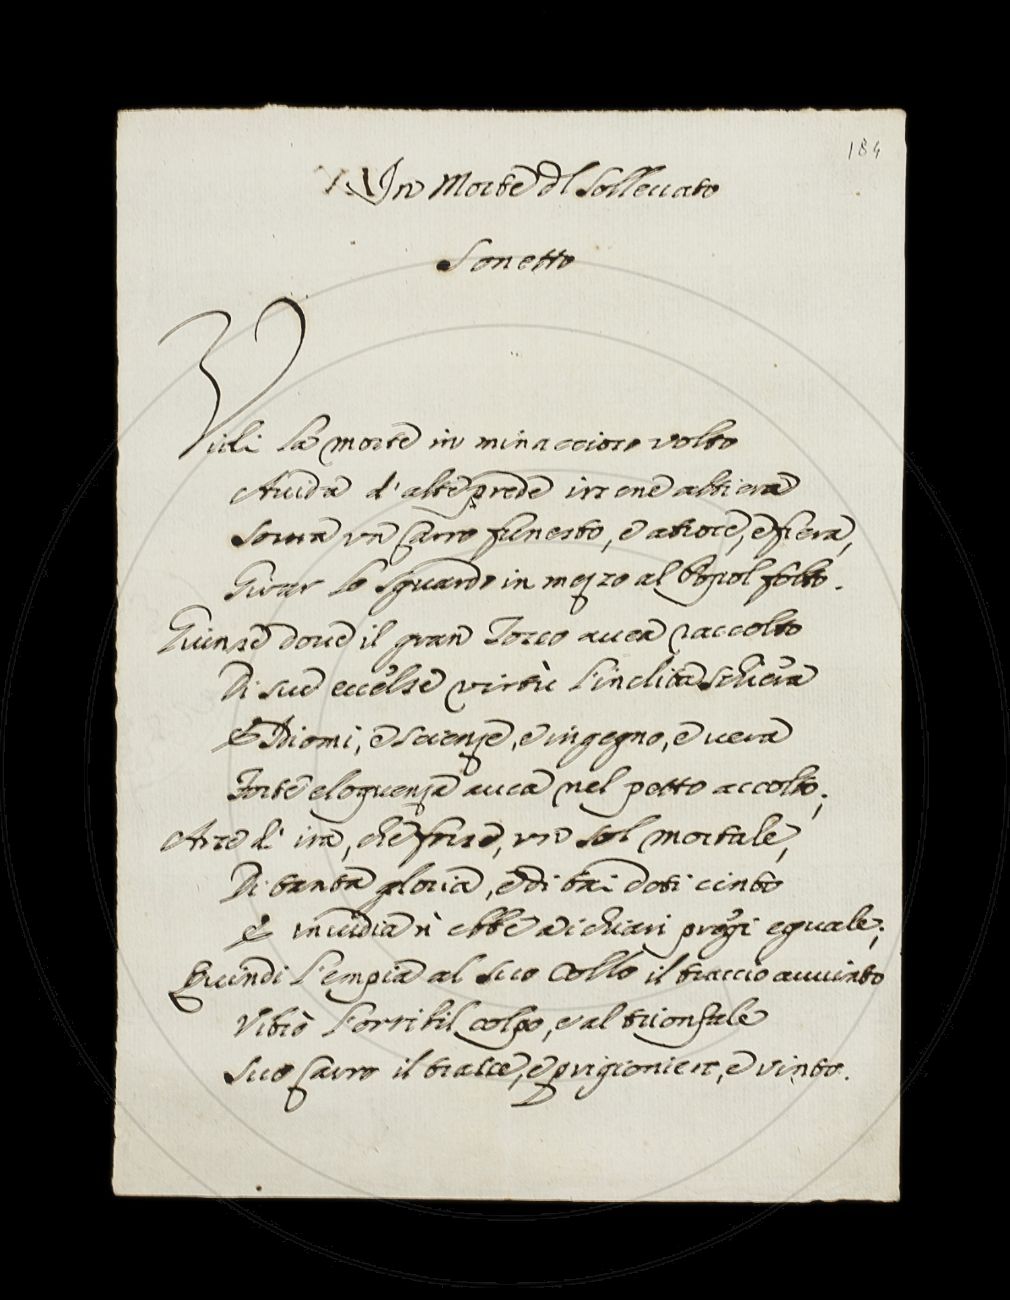 184
In Morte dl Sollecuato
Sonetto
Vidi la morte in minaccioso volto
Auida d'alte prede irsene altiera
Soura un Carro funesto, e atroce, e fiera,
Girar lo sguardo in mezzo al Popol folto.
Giunse doue il gran Torco auea raccolto
Di sue eccelse virtù l'inclita schiera
E Idiomi, e scienze, e ingegno, e uera
Forte eloquenza auea nel petto accolto;
Arse d'ira, che fosse, un sol mortale,
Di tanta gloria, e di tai doti cinto
E inuidia n'ebbe a i chiari pregi eguale;
Quindi l'empia al suo Collo il braccio auuinto
Vibrò l'orribil colpo, e al trionfale
Suo Carro il trasse, e prigionier, e vinto.